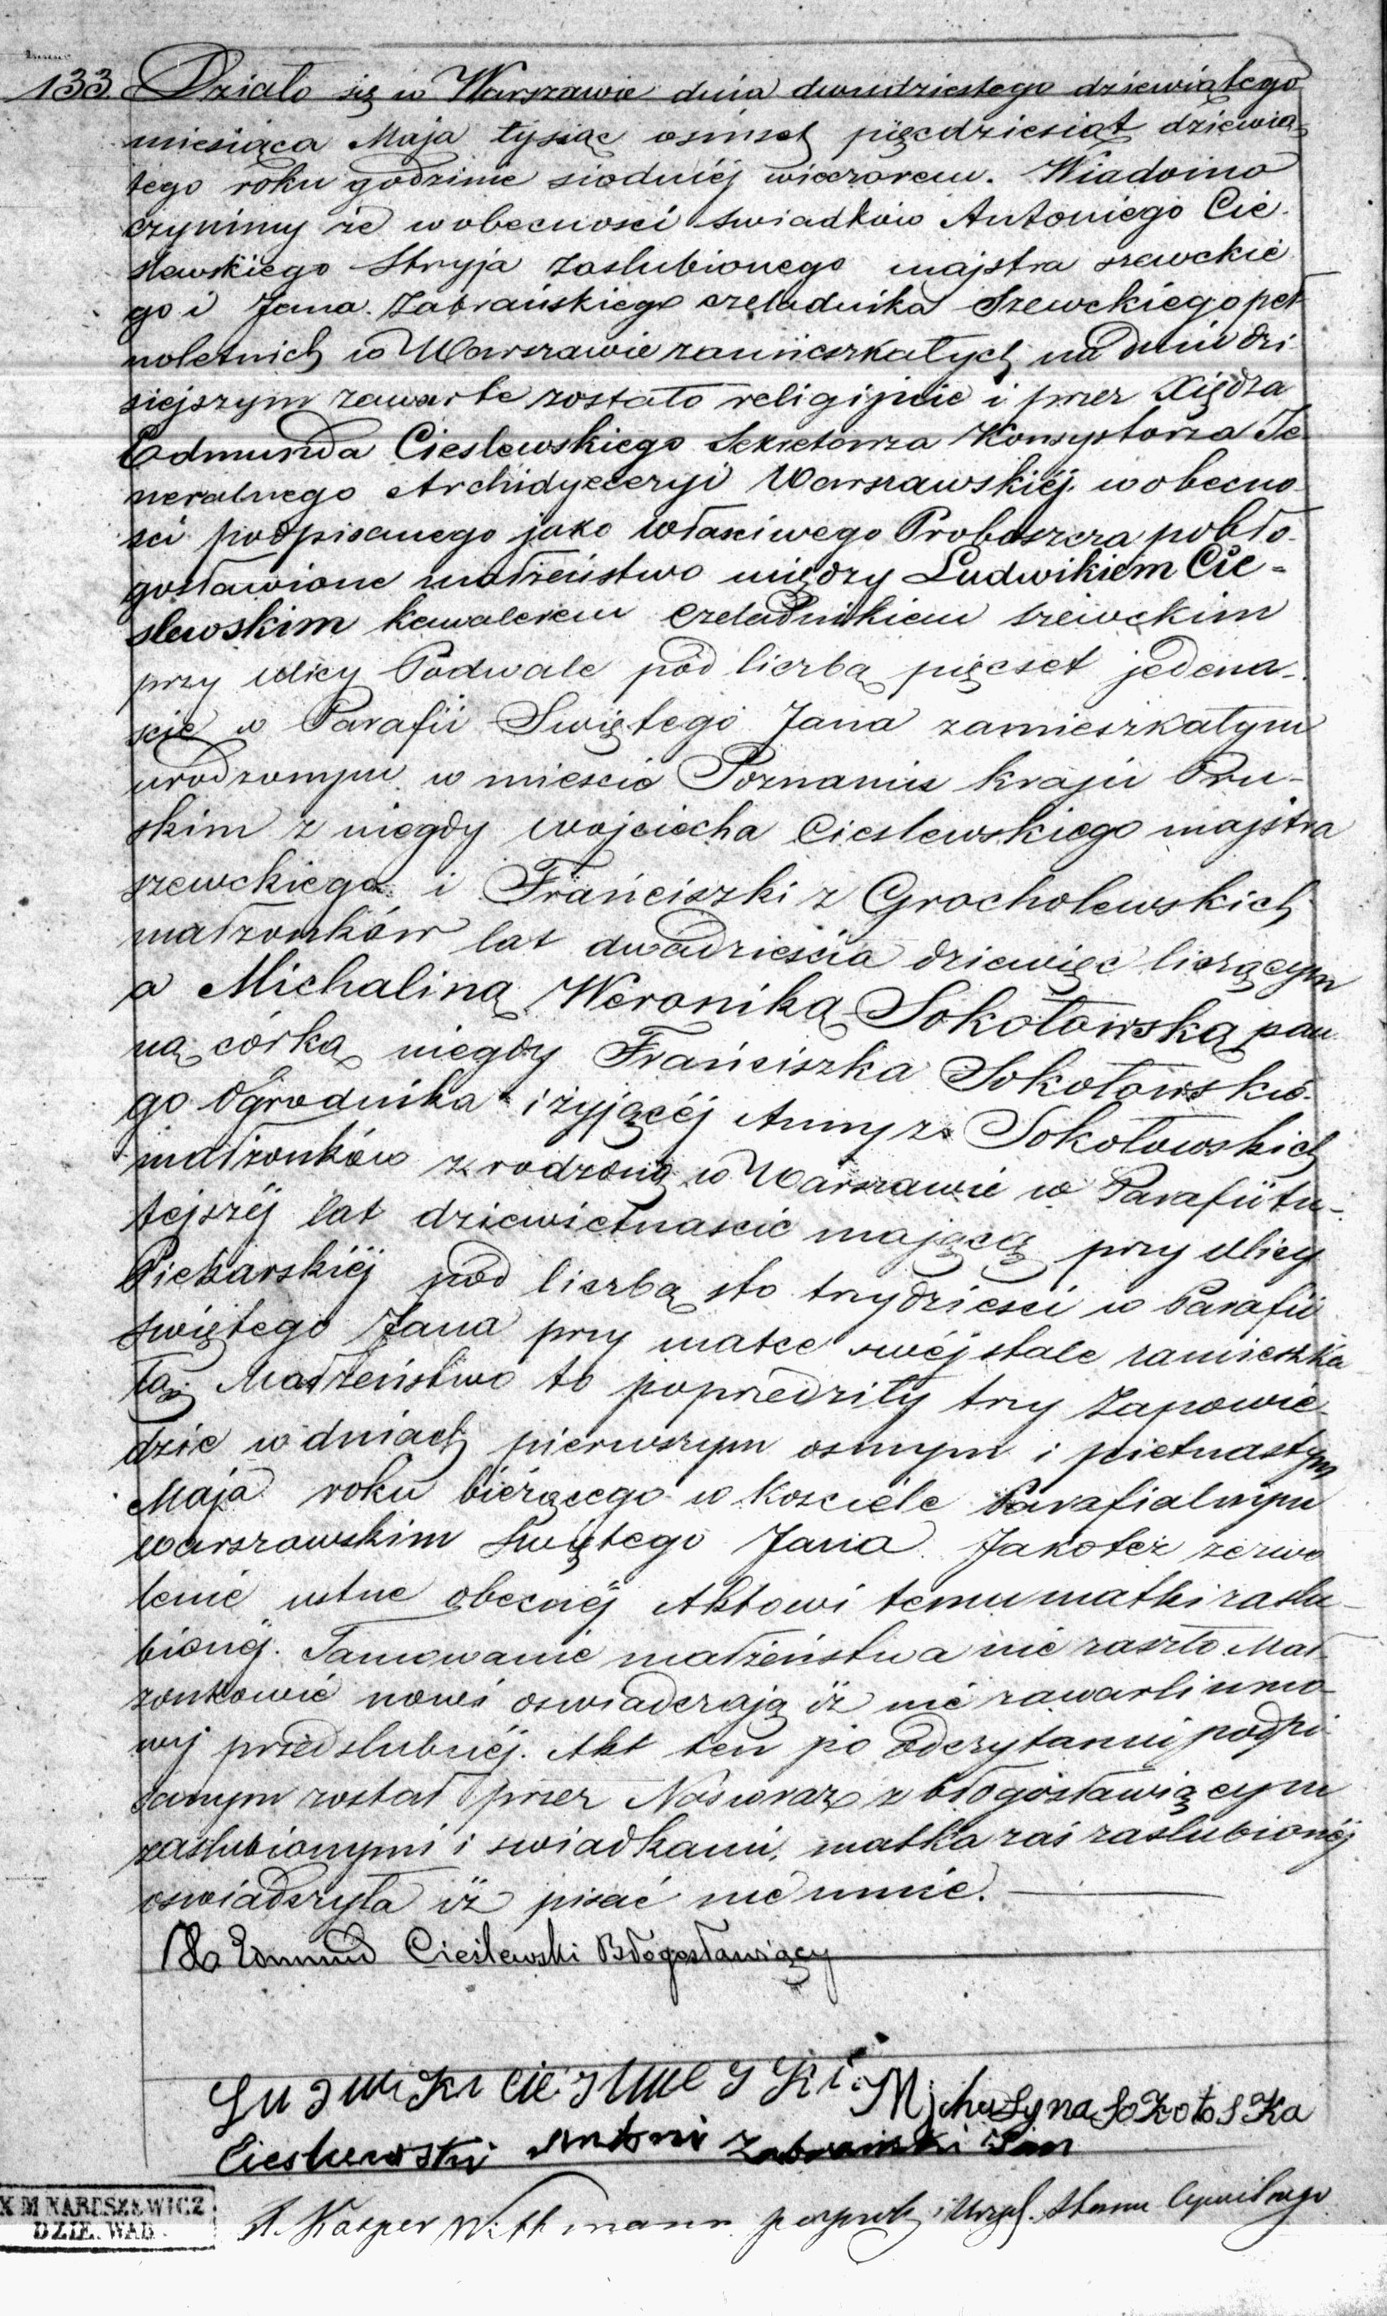 133. Działo się w Warszawie dnia dwudziestego dziewiątego
miesiąca Maja tysiąc osmset pięcdziesiąt dziewią-
tego roku godzinie siodméj wieczorem. Wiadomo
czynimy że w obecnosci swiadków Antoniego Cie-
slewskiego Stryja zaslubionego majstra szewckie
go i Jana Zabrańskiego czeladnika Szewckiego peł
noletnich w Warszawie zamieszkałych na dniu dzi
siejszym zawarte zostało religijnie i przez Xiędza
Edmunda Cieslewskiego Sekretarza Konsystorza Je-
neralnego Archidyecezyi Warszawskiéj w obecno-
sci podpisanego jako własciwego Proboszcza pobło-
gosławione małżeństwo między Ludwikiem Cie-
slewskim kawalerem czeladnikiem szewckim
przy ulicy Podwale pod liczbą pięcset jedena-
scie w Parafii Swiętego Jana zamieszkałym
urodzonym w miescie Poznaniu kraju Pru-
skim z niegdy Wojciecha Cieslewskiego majstra
szewckiego i Franciszki z Grocholewskich
małżonków lat dwadziescia dziewięc liczącym
a Michaliną Weroniką Sokołowską pan
ną córką niegdy Franciszka Sokołowskie-
go Ogrodnika i żyjącéj Anny z Sokołowskich
małżonków zrodzoną w Warszawie w Parafii tu-
tejszéj lat dziewiętnascie mającą przy ulicy
Piekarskiéj pod liczbą sto trzydziesci w Parafii
Swiętego Jana przy matce swéj stale zamieszka
łą. Małżeństwo to poprzedziły trzy Zapowie-
dzie w dniach pierwszym osmym i pietnastym
Maja roku bieżącego w Kosciele Parafialnym
Warszawskim Swiętego Jana. Jakoteż zezwo
lenie ustne obecnéj Aktowi temu matki zaslu-
bionéj. Tamowanie małżeństwa nie zaszło. Mał-
żonkowie nowi oswiadczają iż nie zawarli umo-
wy przedslubnéj. Akt ten po odczytaniu podpi-
sanym został przez Nas wraz z błogosławiącym
zaslubionymi i swiadkami, matka zaś zaslubionéj
oswiadczyła iż pisać nie umie.
X Edmund Cieślewski Błogosławiący
Ludwik Cieslewski Michalyna Sokołoska
Cieslewski Antoni Zabrański Jan
X. Kacper Wittmann i Urzęd. Stanu Cywilnego
X M NARUSZEWICZ
DZIE. WAR.